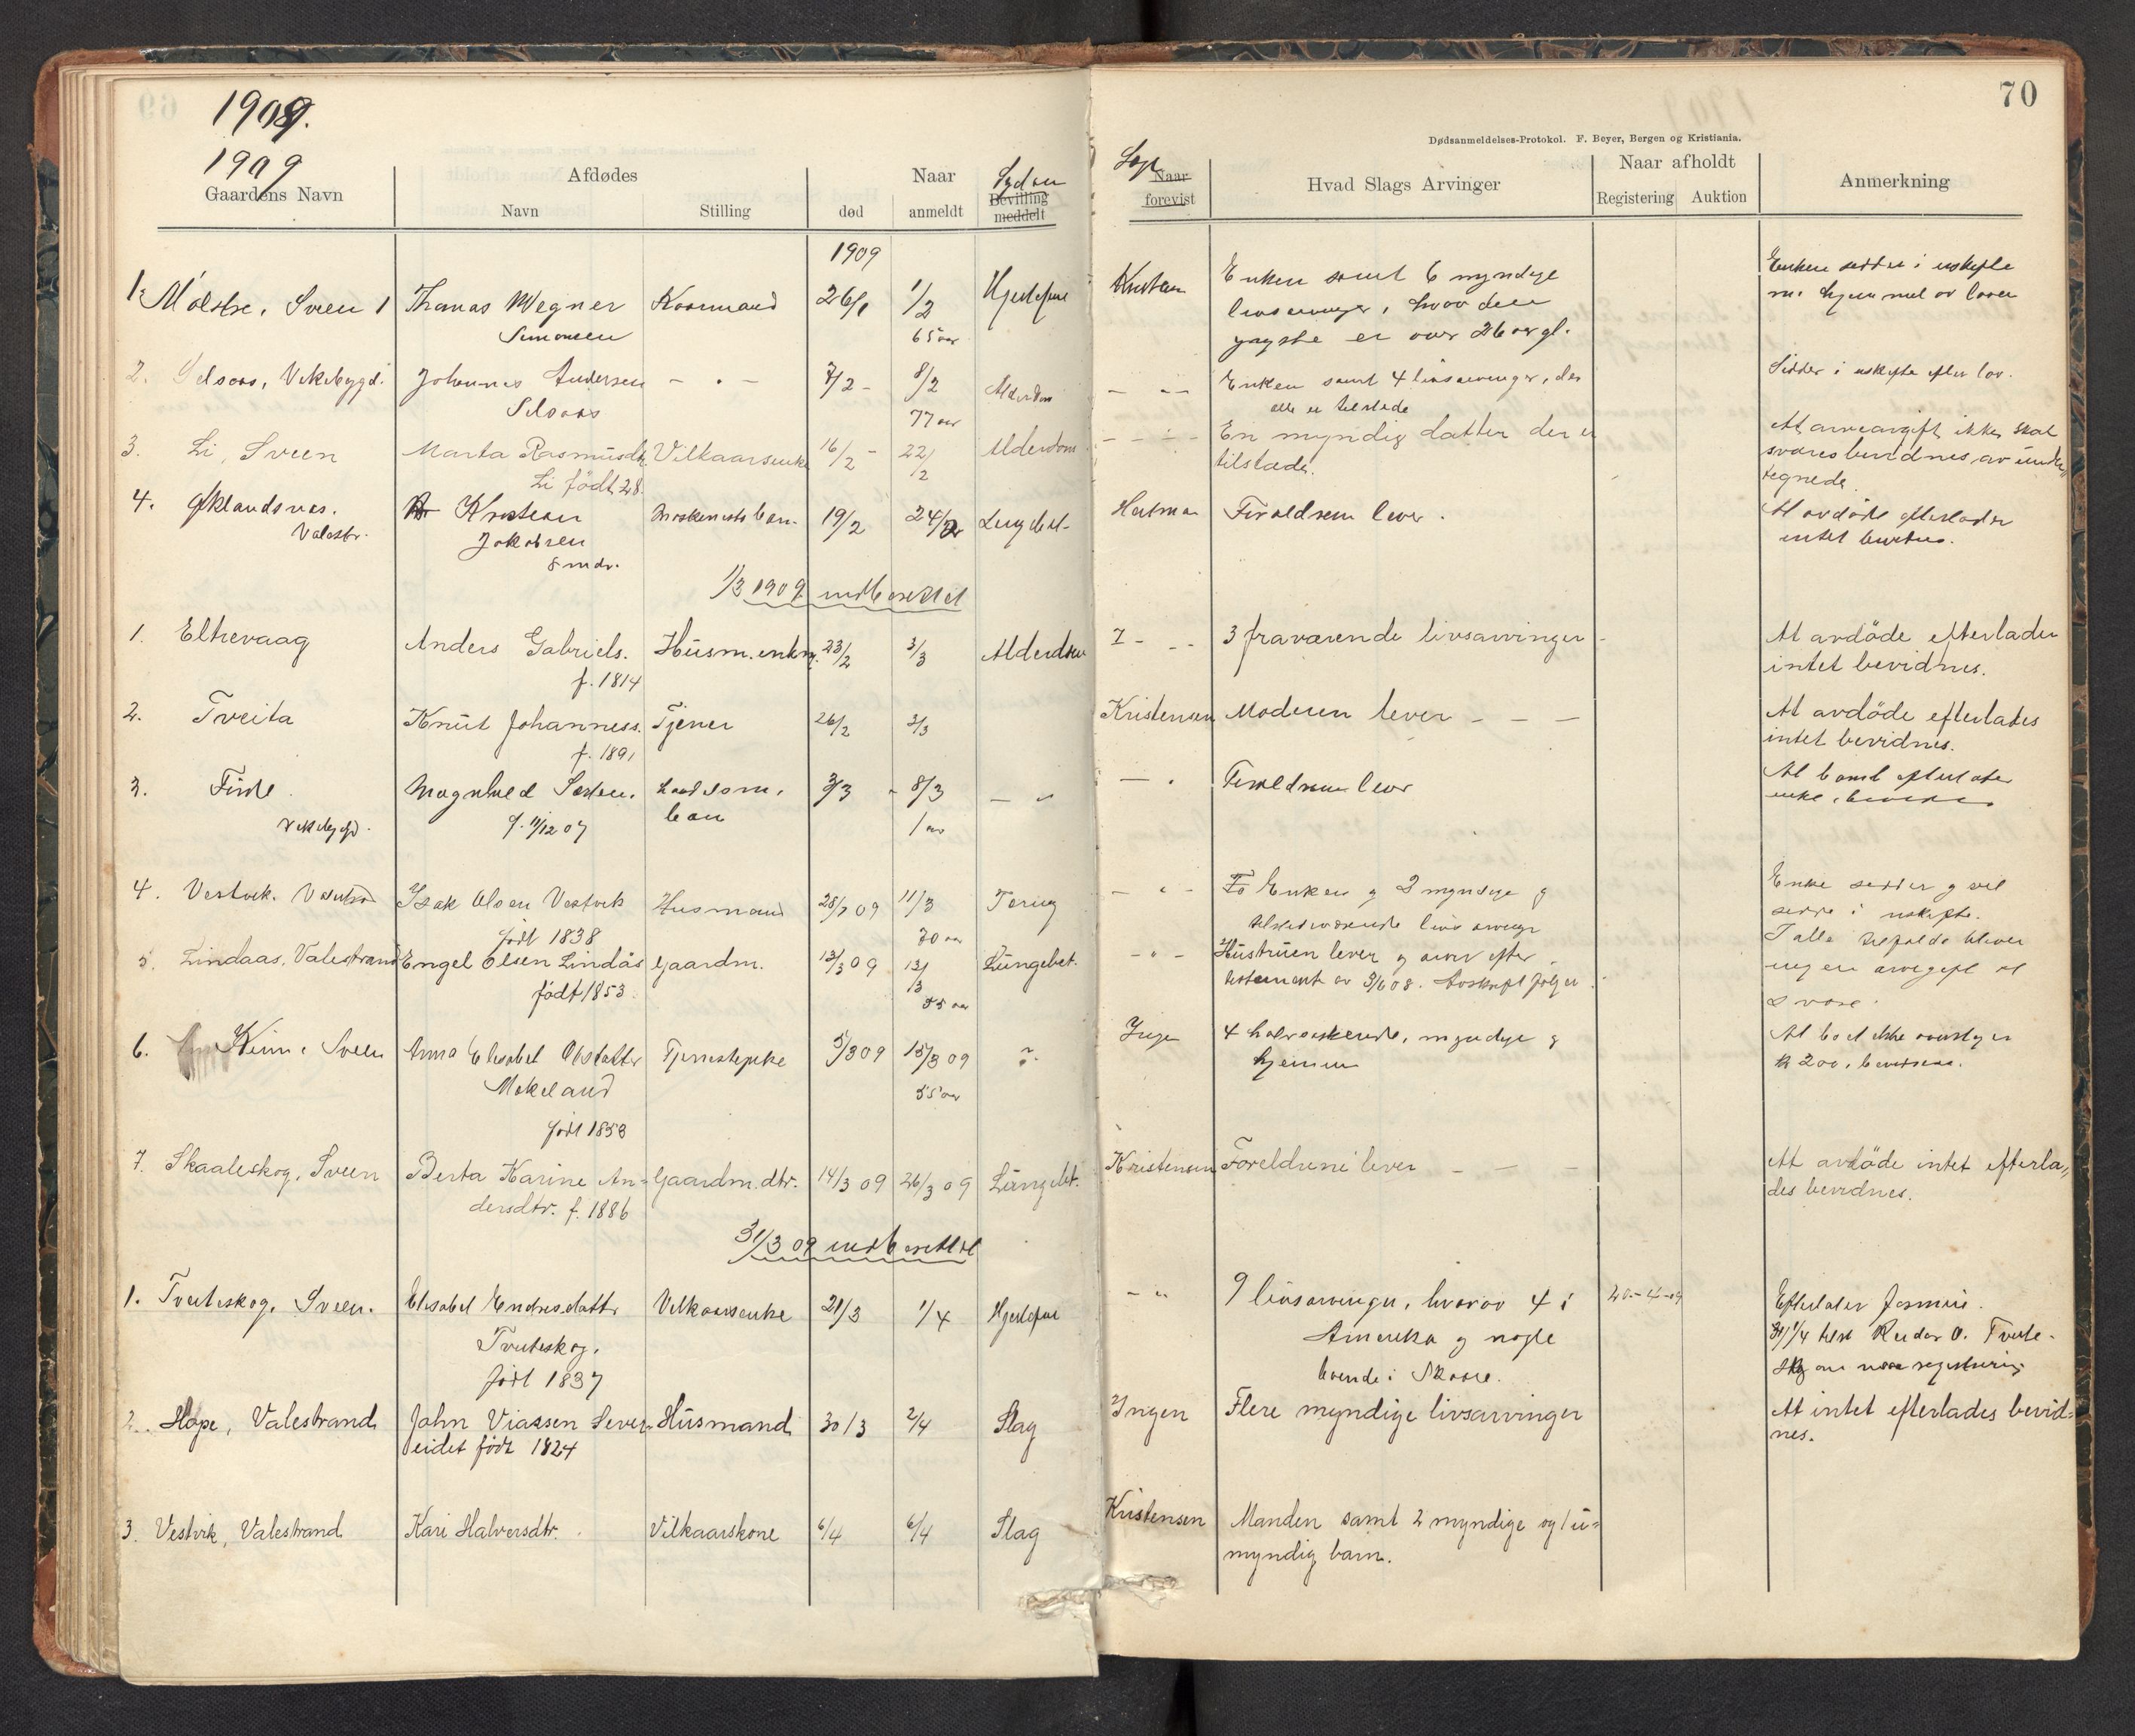 1909.
1909
70
Dødsanmeldelses-Protokol. F. Beyer, Bergen og Kristiania.
Gaardens Navn
Afdødes
Navn
Stilling
Naar
død
anmeldt
Sygdom
Bevilling
meddelt
Naar
forevist
Hvad Slags Arvinger
Naar afholdt
Registering
Auktion
Anmerkning
1909
1. Sveen
Thomas Wegner
Simonsen
26/1
1/2
65 aar
Enken samt 6 myndige
livsarvinger, hvor den
yngste er over 26 aar gl.
Enken sidder i uskifte
2. Vikebygd.
Johannes Andersen
7/2
8/2
77 aar
Alderdom
Enken samt 4 livsarvinger, der
alle er tilstede
Sidder i uskifte efter lov.
3. Li, Sveen
Marta Rasmusdtr.
Li født 28.
Vilkaarsenke
16/2
22/2
Alderdom
En myndig datter der er
tilstæde.
At arveavgift ikke skal
svares bevidnes av under-
tegnede.
4. Øklandsnes.
Valestr.
Kristian
Jakobsen
8 mdr.
19/2
24/2
Lungebet.
Foreldrene lever.
At avdöde efterlader
intet bevidnes.
1/3 1909 indberettet
1. Eltrevaag
Anders Gabriels.
f. 1814
Husm.enkm.
23/2
3/3
Alderdom
3 fraværende livsarvinger
At avdöde efterlader
intet bevidnes.
2. Tveita
Knut Johanness.
f. 1891
Tjener
26/2
3/3
Kristensen
Moderen lever
At avdöde efterlades
intet bevidnes.
3.
Vikebygd.
f. 11/12 07
3/3
8/3
1 aar
Foreldrene lever
4. Vestvik. Valestrand
Isak Olsen Vestvik
født 1838
Husmand
11/3
70 aar
Tæring
Enken og 2 myndige og
tilstedeværende livsarvinger
Enke sidder og vil
sidde i uskifte.
5. Lindaas, Valestrand
Engel Olsen Lindås
født 1853.
Gaardm.
13/3 09
13/3
55 aar
Lungebet.
Hustruen lever og arver efter
testament av 3/6 08. Avskrift følger
I alle tilfælde bliver
ingen arvegift at
svare.
6. Sveen
Anna Elisabet Olsdatter
Mokeland
født 1853
Tjenestepike
5/3 09
15/3 09
55 aar
?
Ingen
4 halvsøskende, myndige og
hjemme
At boet ikke overstiger
kr 200, bevidnes.
7. Skaaleskog, Sveen
Berta Karine An-
dersdtr. f. 1886
Gaardm.dtr.
14/3 09
26/3 09
Lungebet.
Kristensen
Foreldrene lever
At avdöde intet efterla-
des bevidnes.
31/3 09 indberettet
1. Tveiteskog, Sveen.
Elisabet Endresdatter
Tveiteskog.
født 1837
Vilkaarsenke
21/3
1/4
Hjertefeil
9 livsarvinger, hvorav 4 i
Amerika og nogle
boende i Skaare.
20-4-09
2. Hope, Valestrand
John Viassen Sever-
eidet født 1824
Husmand
30/3
2/4
Slag
Ingen
Flere myndige livsarvinger
At intet efterlades bevid-
nes.
3. Vestvik, Valestrand
Kari Halversdtr.
Vilkaarskone
6/4
6/4
Slag
Kristensen
Manden samt 2 myndige og 1 u-
myndig barn.